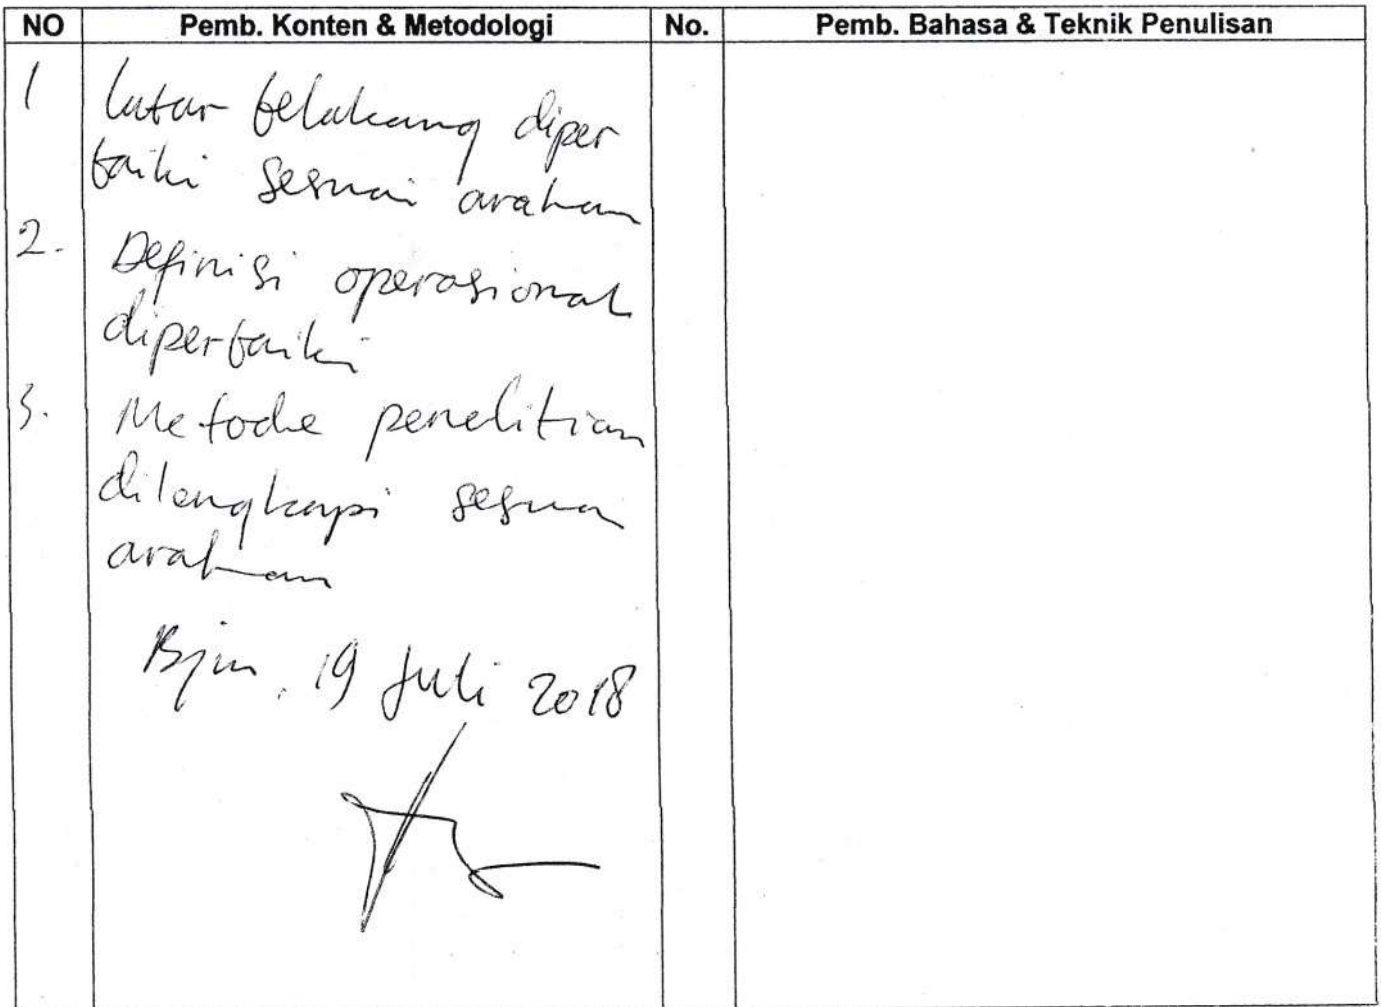 NO Pemb. Konten & Metodologi No. Pemb. Bahasa & Teknik Penulisan
1 latar belakang diper
baiki sesuai arahan
2. Definisi operasional
diperbaiki
3. Metode penelitian
dilengkapi sesuai
arahan
Bjm, 19 Juli 2018